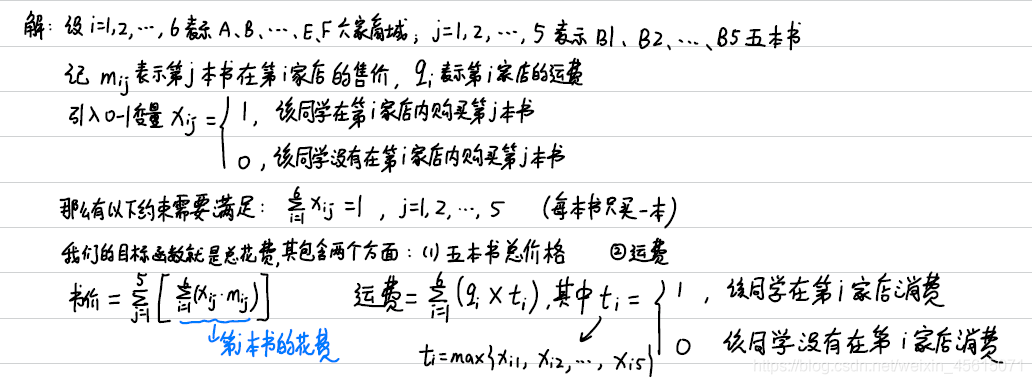 解：设 i=1,2,…,6表示 A、B、…、E、F 六家商城；j=1,2,…,5 表示 B1、B2、…、B5 五本书
记 mij 表示第j本书在第i家店的售价，qi 表示第i家店的运费
引入0-1变量 xij = { 1，该同学在第i家店内购买第j本书
0，该同学没有在第i家店内购买第j本书
那么有以下约束需要满足：∑_{i=1}^{6} xij = 1，j=1,2,…,5 （每本书只买一本）
我们的目标函数就是总花费，其包含两个方面：(1) 五本书总价格 ②运费
书价 = ∑_{j=1}^{5} [∑_{i=1}^{6} (xij·mij)] 运费 = ∑_{i=1}^{6} (qi × ti)，其中 ti = { 1，该同学在第i家店消费
↓第j本书的花费 0 该同学没有在第i家店消费
ti=max{xi1, xi2, …, xi5}
https://blog.csdn.net/weixin_45615071